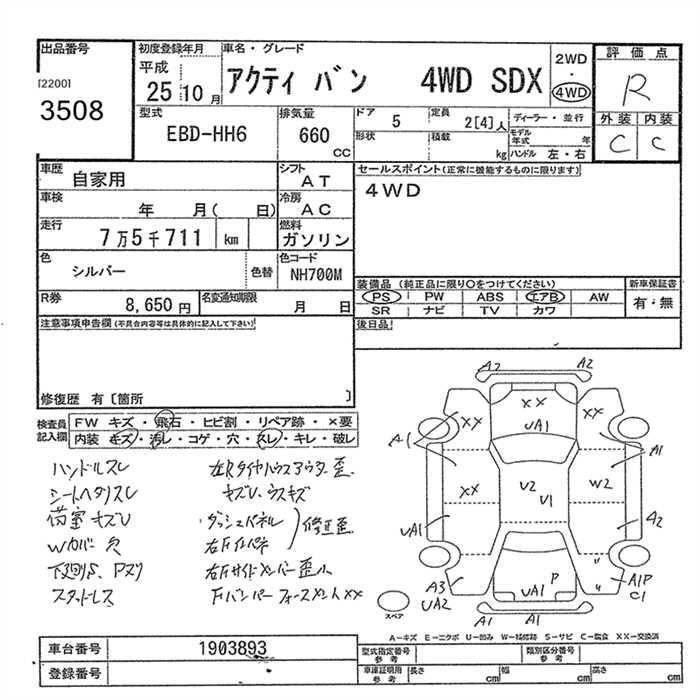 出品番号
[2200]
3508
初度登録年月
平成
25 10 月
車名・グレード
アクティ バン 4WD SDX
2WD
・
4WD
評価点
R
外装 内装
C C
型式
EBD-HH6
排気量
660
CC
ドア
5
定員
2[4]人
形状
積載
kg
ディーラー・並行
モデル年式 年
ハンドル 左・右
車歴
自家用
シフト
AT
車検
年 月( 日)
冷房
AC
走行
7万5千711 km
燃料
ガソリン
色
シルバー
色替
色コード
NH700M
R券
8,650 円
名変通知期限
月 日
セールスポイント(正常に機能するものに限ります)
4WD
装備品 (純正品に限り○をつけてください)
PS PW ABS エアB AW
SR ナビ TV カワ
新車保証書
有・無
後日品
注意事項申告欄(不具合内容等は具体的に記入して下さい)
修復歴 有〔箇所 〕
検査員記入欄
FW キズ・飛石・ヒビ割・リペア跡・×要
内装 キズ・汚レ・コゲ・穴・スレ・キレ・破レ
ハンドルスレ
シートヘタリスレ
荷室キズU
Wカバー欠
下廻りS、Pヌリ
スタッドレス
左Rタイヤハウスアウター歪
キズU、ウスキズ
ダッシュパネル
右Fインパネ
修正歪
右Fサイドメンバー歪小
FバンパーフォースメントXX
A2 A2
XX
UA1
XX XX
A1 A1
XX
U2
U1
W2
UA1 A2
P
UA1
A3
UA2
A1P
C1
A1 A1
スペア
A-キズ E-エクボ U-凹み W-補修跡 S-サビ C-腐食 XX-交換済
車台番号 1903893
登録番号
型式指定番号 参考
類別区分番号 参考
車庫証明用 参考
長さ cm 幅 cm 高さ cm